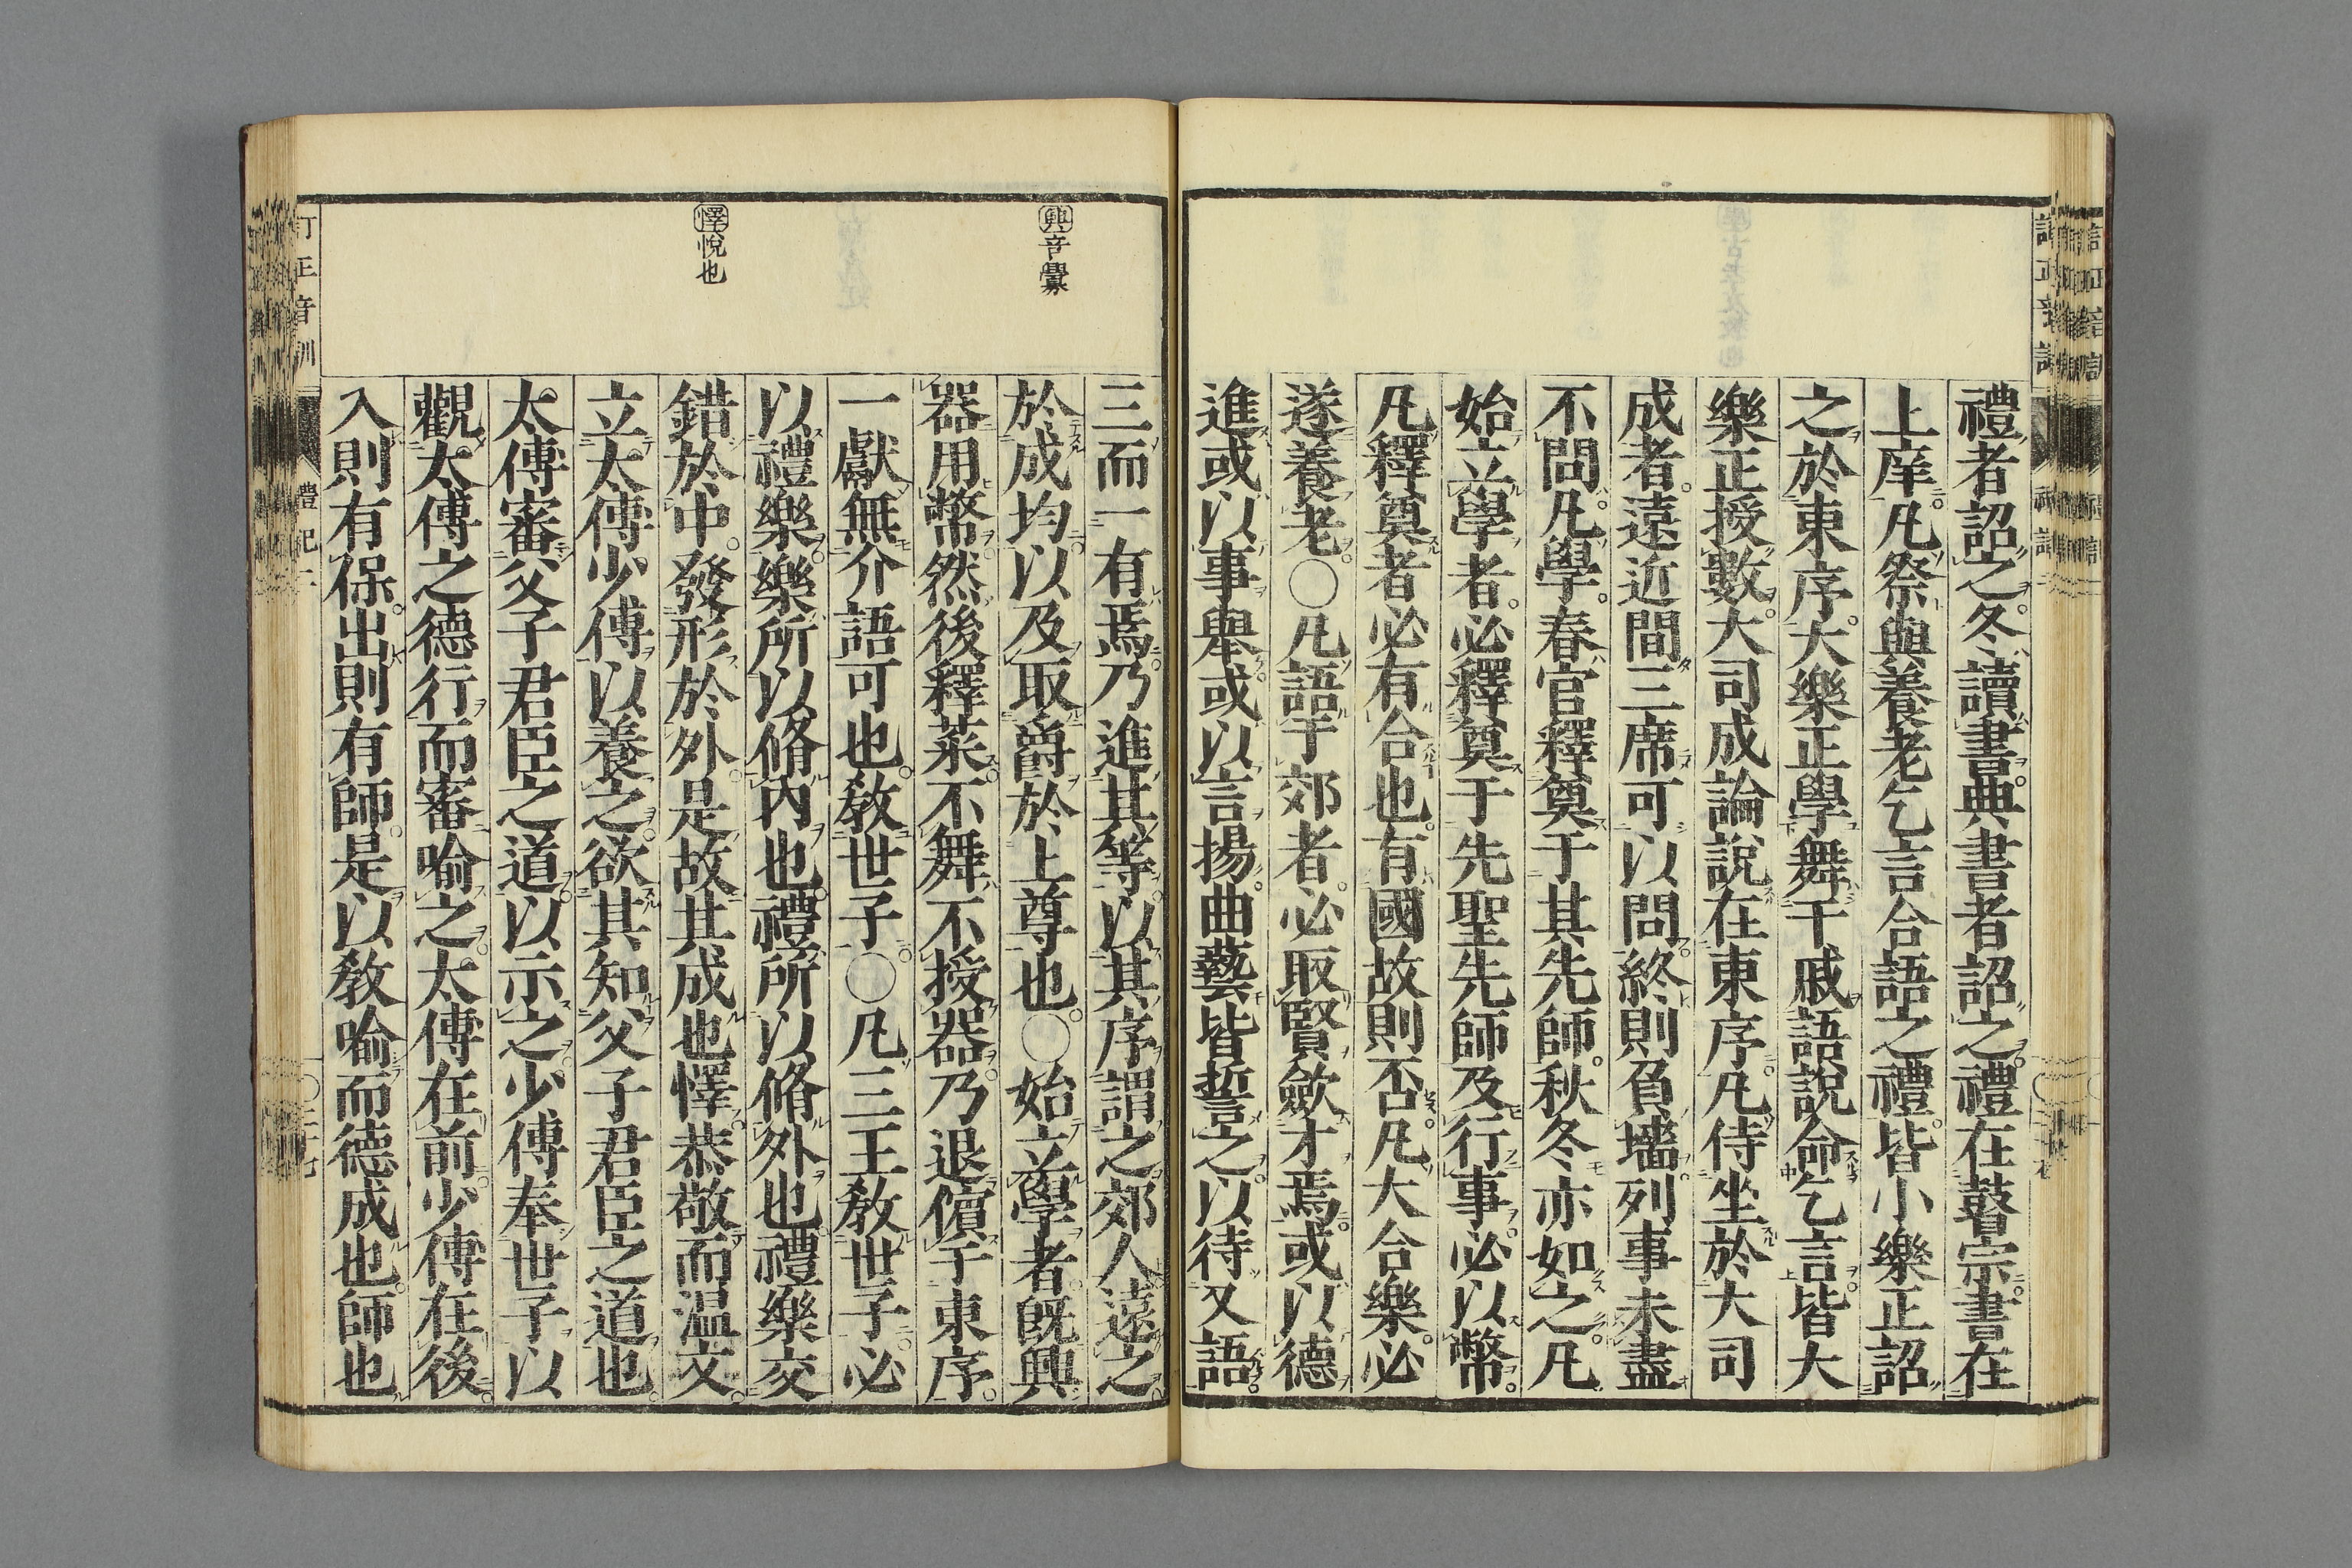 禮者詔之冬讀書典書者詔之禮在瞽宗書在
上庠凡祭與養老乞言合語之禮皆小樂正詔
之於東序大樂正學舞干戚語說命乞言皆大
樂正授數大司成論說在東序凡侍坐於大司
成者遠近間三席可以問終則負墻列事未盡
不問凡學春官釋奠于其先師秋冬亦如之凡
始立學者必釋奠于先聖先師及行事必以幣
凡釋奠者必有合也有國故則否凡大合樂必
遂養老○凡語于郊者必取賢斂才焉或以德
進或以事舉或以言揚曲藝皆誓之以待又語
三而一有焉乃進其等以其序謂之郊人遠之
於成均以及取爵於上尊也○始立學者既興
器用幣然後釋菜不舞不授器乃退儐于東序
一獻無介語可也教世子○凡三王教世子必
以禮樂樂所以脩內也禮所以脩外也禮樂交
錯於中發形於外是故其成也懌恭敬而温文
立太傅少傅以養之欲其知父子君臣之道也
太傅審父子君臣之道以示之少傅奉世子以
觀太傅之德行而審喻之太傅在前少傅在後
入則有保出則有師是以教喻而德成也師也
興音釁
懌悅也
訂正音訓
禮記二